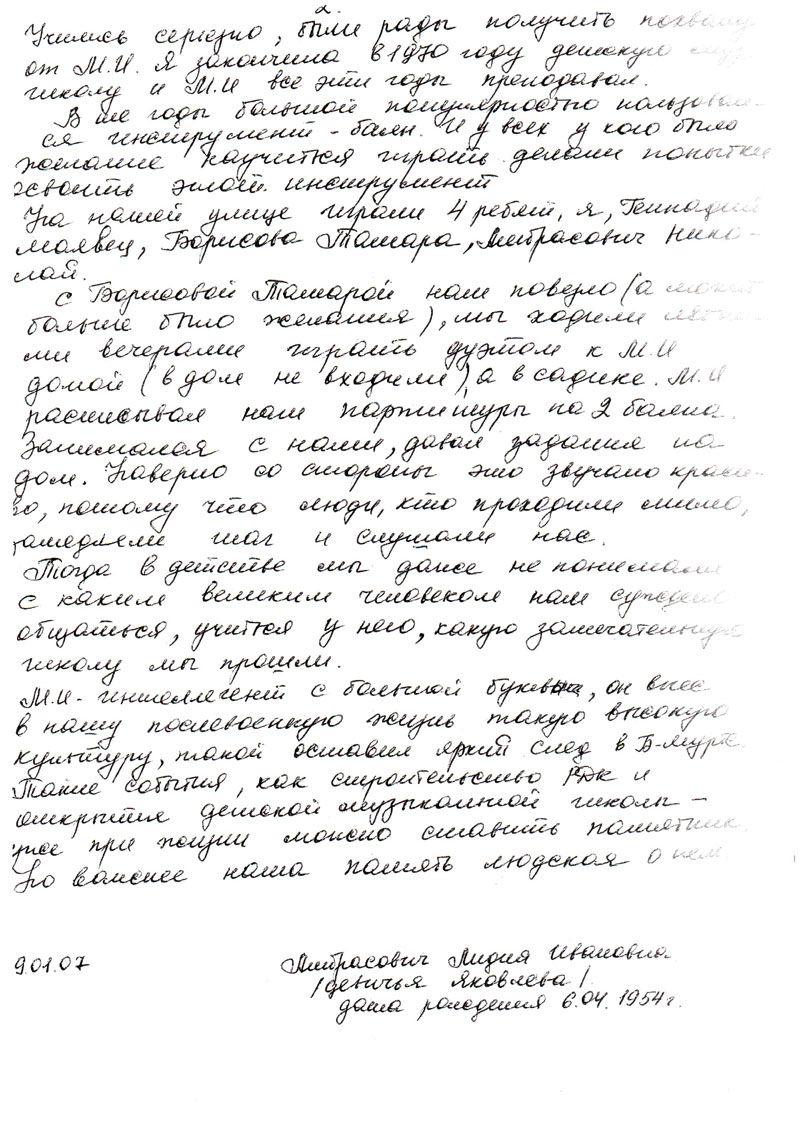 2.
Учились серьезно, были рады получить похвалу
от М.И. Я закончила в 1970 году детскую муз.
школу и М.И все эти годы преподавал.
В те годы большой популярностью пользовал-
ся инструмент - баян. И у всех у кого было
желание научиться играть делали попытки
освоить этот инструмент
На нашей улице играли 4 ребят, я, Геннадий
Малявец, Борисова Тамара, Митрасович Нико-
лай.
С Борисовой Тамарой нам повезло (а может
больше было желания), мы ходили летни
ми вечерами играть дуэтом к М.И
домой (в дом не входили), а в садике. М.И
расписывал нам партитуры на 2 баяна.
Занимался с нами, давал задания на
дом. Наверно со стороны это звучало краси-
во, потому что люди, кто проходили мимо,
замедляли шаг и слушали нас.
Тогда в детстве мы даже не понимали
с каким великим человеком нам суждено
общаться, учиться у него, какую замечательную
школу мы прошли.
М.И - интеллегент с большой буквы, он внес
в нашу послевоенную жизнь такую высокую
культуру, такой оставил яркий след в Б-Мурте.
Такие события, как строительство РДК и
открытия детской музыкальной школы -
уже при жизни можно ставить памятник.
Но важнее наша память людская о нем
9.01.07
Митрасович Лидия Ивановна
/девичья Яковлева/
дата рождения 6.04.1954г.